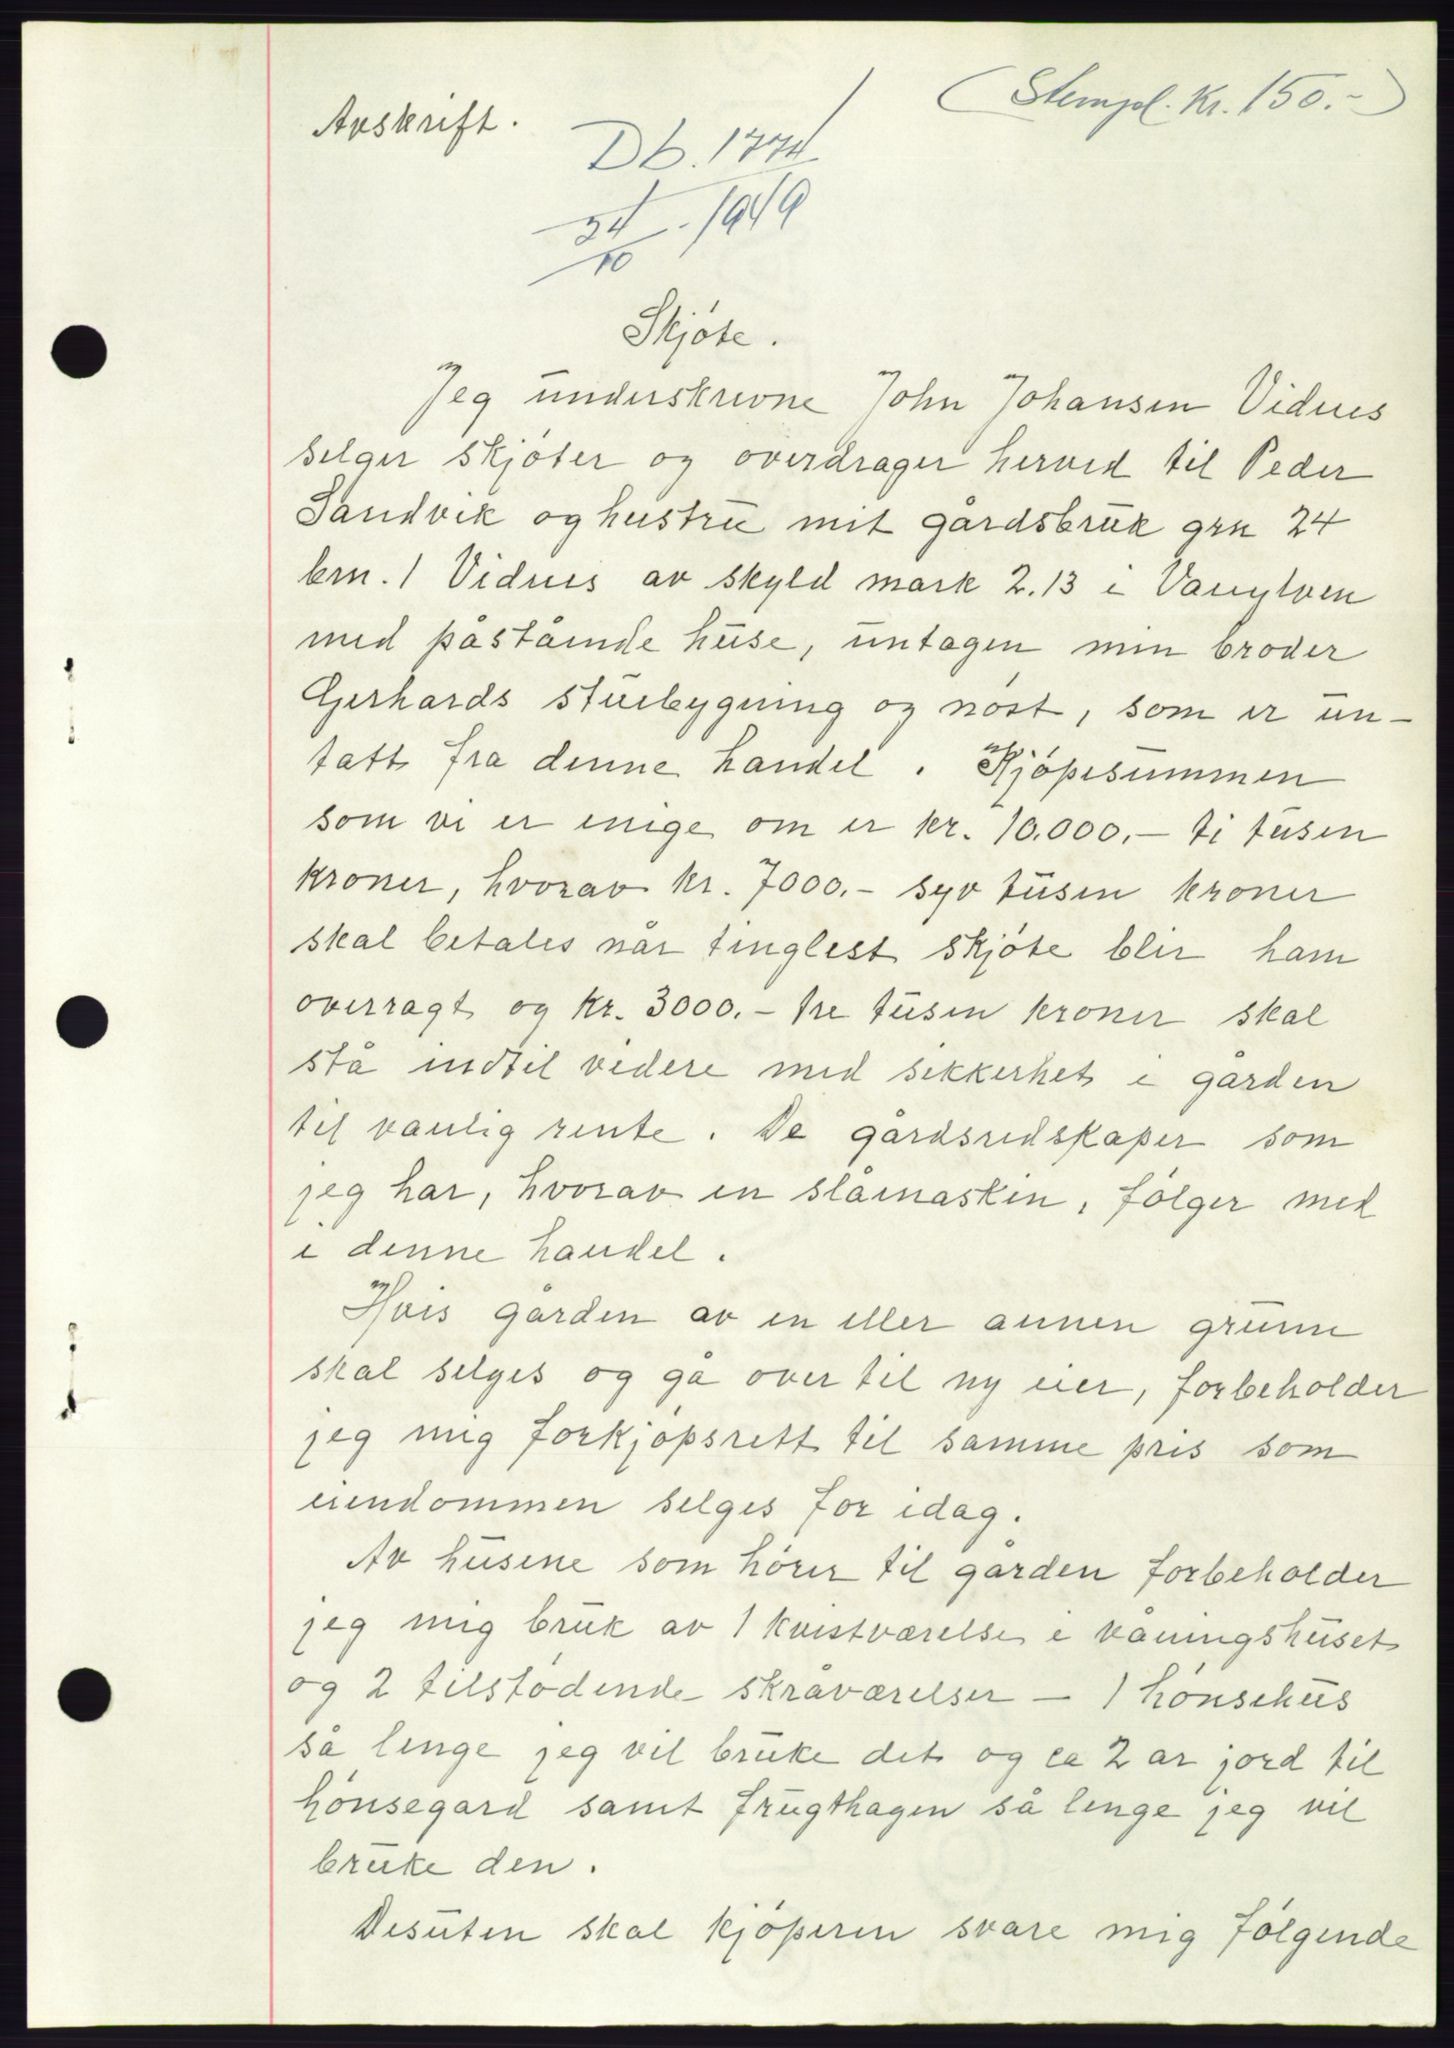 (Stempel. Kr. 150.-)
Avskrift.
Db. 1774
24/10 - 1949
Skjöte.
Jeg underskrevne John Johansen Vidnes
selger skjöter og overdrager herved til Peder
Sandvik og hustru mit gårdsbruk grn 24
brn. 1 Vidnes av skyld mark 2.13 i Vanylven
med påstående huse, untagen min broder
Gerhards stuebygning og nöst, som er un-
tatt fra denne handel. Kjöpesummen
som vi er enige om er kr. 10.000.- ti tusen
kroner, hvorav kr. 7000.- syv tusen kroner
skal betales når tinglest skjöte blir ham
overragt og kr. 3000.- tre tusen kroner skal
stå indtil videre med sikkerhet i gården
til vanlig rente. De gårdsredskaper som
jeg har, hvorav en slåmaskin, fölger med
i denne handel.
Hvis gården av en eller annen grunn
skal selges og gå over til ny eier, forbeholder
jeg mig forkjöpsrett til samme pris som
eiendommen selges for idag.
Av husene som hörer til gården forbeholder
jeg mig bruk av 1 kvistværelse i våningshuset
og 2 tilstödende skråværelser - 1 hönsehus
så lenge jeg vil bruke det og ca 2 ar jord til
hönsegard samt frugthagen så lenge jeg vil
bruke den.
Desuten skal kjöperen svare mig fölgende